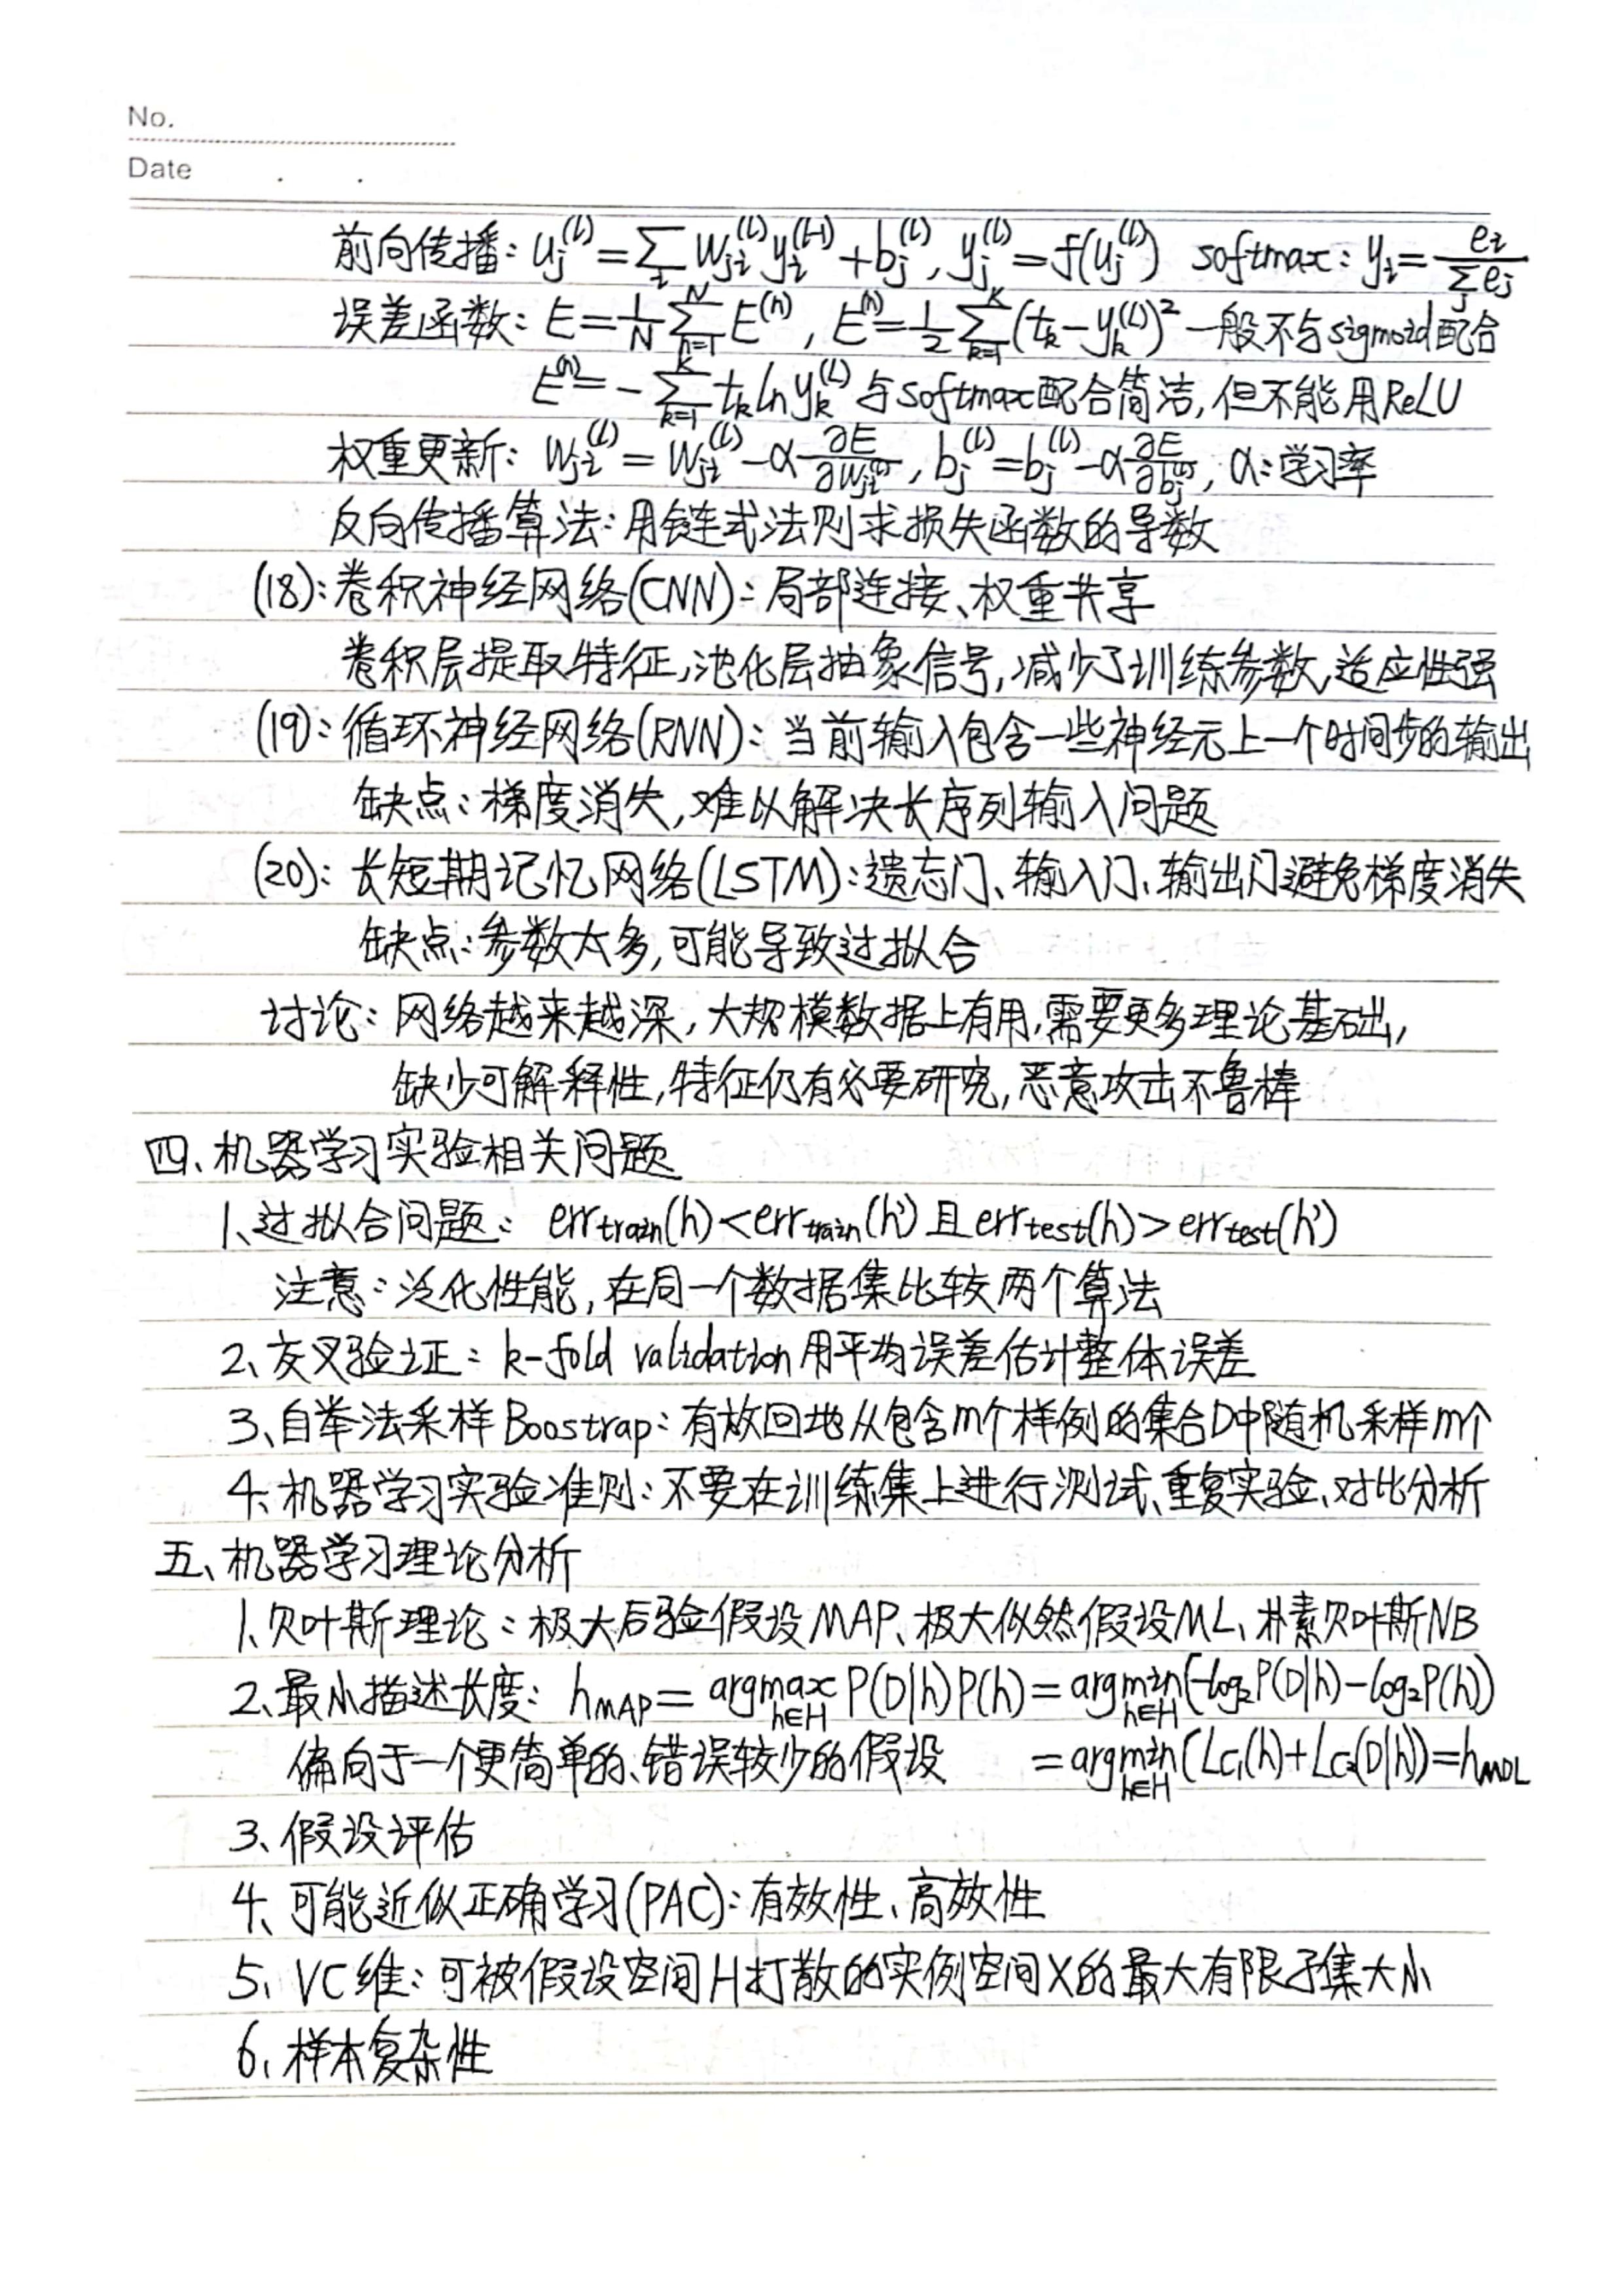 No.
Date . .
前向传播: u_j^(l) = Σ_i w_ji^(l) y_i^(l-1) + b_j^(l), y_j^(l) = f(u_j^(l)) softmax: y_i = e_i / Σ_j e_j
误差函数: E = 1/N Σ_{n=1}^N E^(n), E^(n) = 1/2 Σ_{k=1}^K (t_k - y_k^(L))² 一般不与sigmoid配合
E^(n) = - Σ_{k=1}^K t_k ln y_k^(L) 与softmax配合简洁,但不能用ReLU
权重更新: w_ji^(l) = w_ji^(l) - α ∂E/∂w_ji^(l), b_j^(l) = b_j^(l) - α ∂E/∂b_j^(l), α:学习率
反向传播算法:用链式法则求损失函数的导数
(18): 卷积神经网络(CNN): 局部连接、权重共享
卷积层提取特征,池化层抽象信号,减少了训练参数,适应性强
(19): 循环神经网络(RNN): 当前输入包含一些神经元上一个时间步的输出
缺点: 梯度消失,难以解决长序列输入问题
(20): 长短期记忆网络(LSTM):遗忘门、输入门、输出门避免梯度消失
缺点:参数太多,可能导致过拟合
讨论: 网络越来越深,大规模数据上有用,需要更多理论基础,
缺少可解释性,特征仍有必要研究,恶意攻击不鲁棒
四、机器学习实验相关问题
1、过拟合问题: err_train(h) < err_train(h') 且 err_test(h) > err_test(h')
注意: 泛化性能,在同一个数据集比较两个算法
2、交叉验证: k-fold validation用平均误差估计整体误差
3、自举法采样Boostrap: 有放回地从包含m个样例的集合D中随机采样m个
4、机器学习实验准则: 不要在训练集上进行测试、重复实验、对比分析
五、机器学习理论分析
1、贝叶斯理论: 极大后验假设MAP、极大似然假设ML、朴素贝叶斯NB
2、最小描述长度: h_MAP = argmax_{h∈H} P(D|h)P(h) = argmin_{h∈H}(-log₂P(D|h)-log₂P(h))
偏向于一个更简单的、错误较少的假设 = argmin_{h∈H}(L_C₁(h)+L_C₂(D|h)) = h_MDL
3、假设评估
4、可能近似正确学习(PAC): 有效性、高效性
5、VC维: 可被假设空间H打散的实例空间X的最大有限子集大小
6、样本复杂性